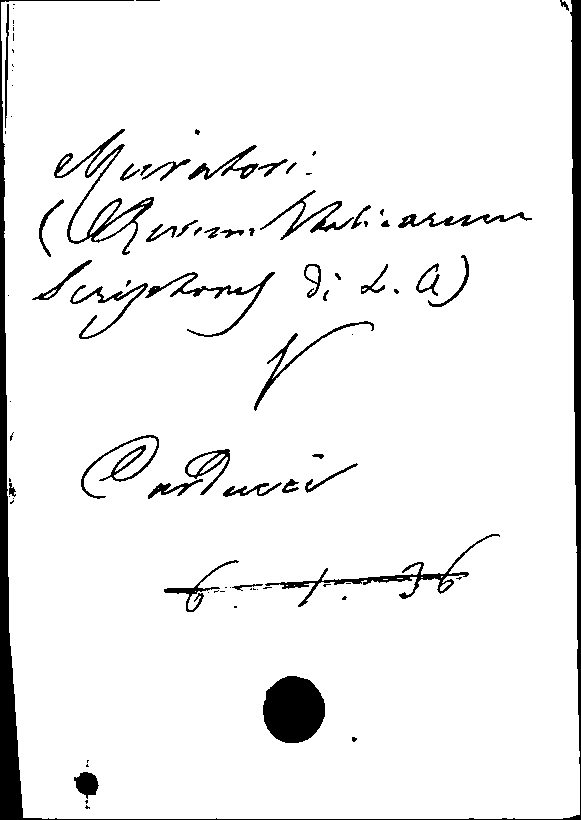 Muratori.
(Rerum Italicarum
Scriptores di L. A)
V
Carducci
6. 1. 36